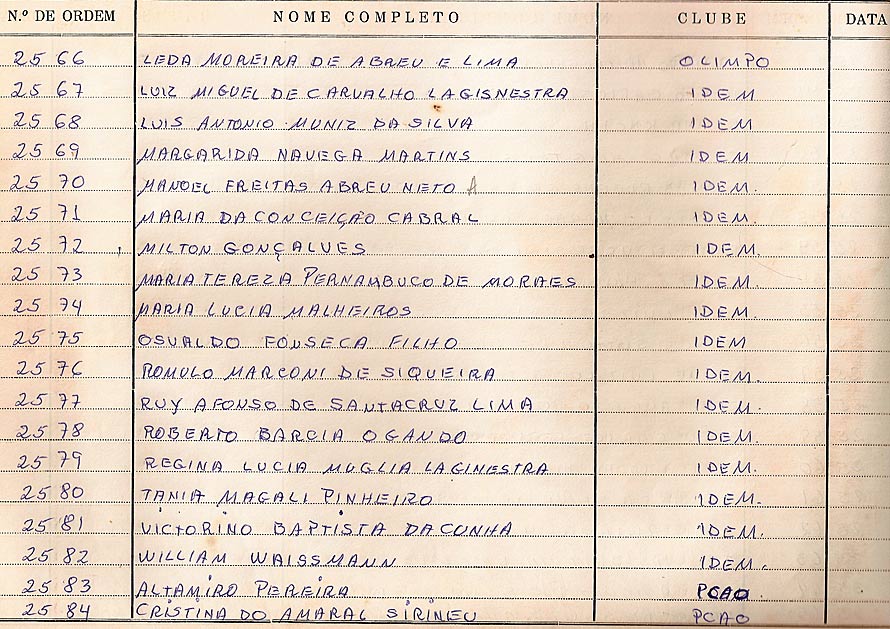 N.º DE ORDEM NOME COMPLETO CLUBE DATA
25 66 LEDA MOREIRA DE ABREU E LIMA OLIMPO
25 67 LUIZ MIGUEL DE CARVALHO LAGISNESTRA IDEM
25 68 LUIS ANTONIO MUNIZ DA SILVA IDEM
25 69 MARGARIDA NAVEGA MARTINS IDEM
25 70 MANOEL FREITAS ABREU NETO A IDEM.
25 71 MARIA DA CONCEIÇÃO CABRAL IDEM.
25 72 MILTON GONÇALVES IDEM.
25 73 MARIA TEREZA PERNAMBUCO DE MORAES IDEM.
25 74 MARIA LUCIA MALHEIROS IDEM.
25 75 OSVALDO FONSECA FILHO IDEM
25 76 ROMULO MARCONI DE SIQUEIRA IDEM.
25 77 RUY AFONSO DE SANTACRUZ LIMA IDEM.
25 78 ROBERTO BARCIA OGANDO IDEM.
25 79 REGINA LUCIA MUGLIA LAGINESTRA IDEM.
25 80 TANIA MAGALI PINHEIRO IDEM.
25 81 VICTORINO BAPTISTA DA CUNHA IDEM.
25 82 WILLIAM WAISSMANN IDEM.
25 83 ALTAMIRO PEREIRA PCAO
25 84 CRISTINA DO AMARAL SIRINEU PCAO